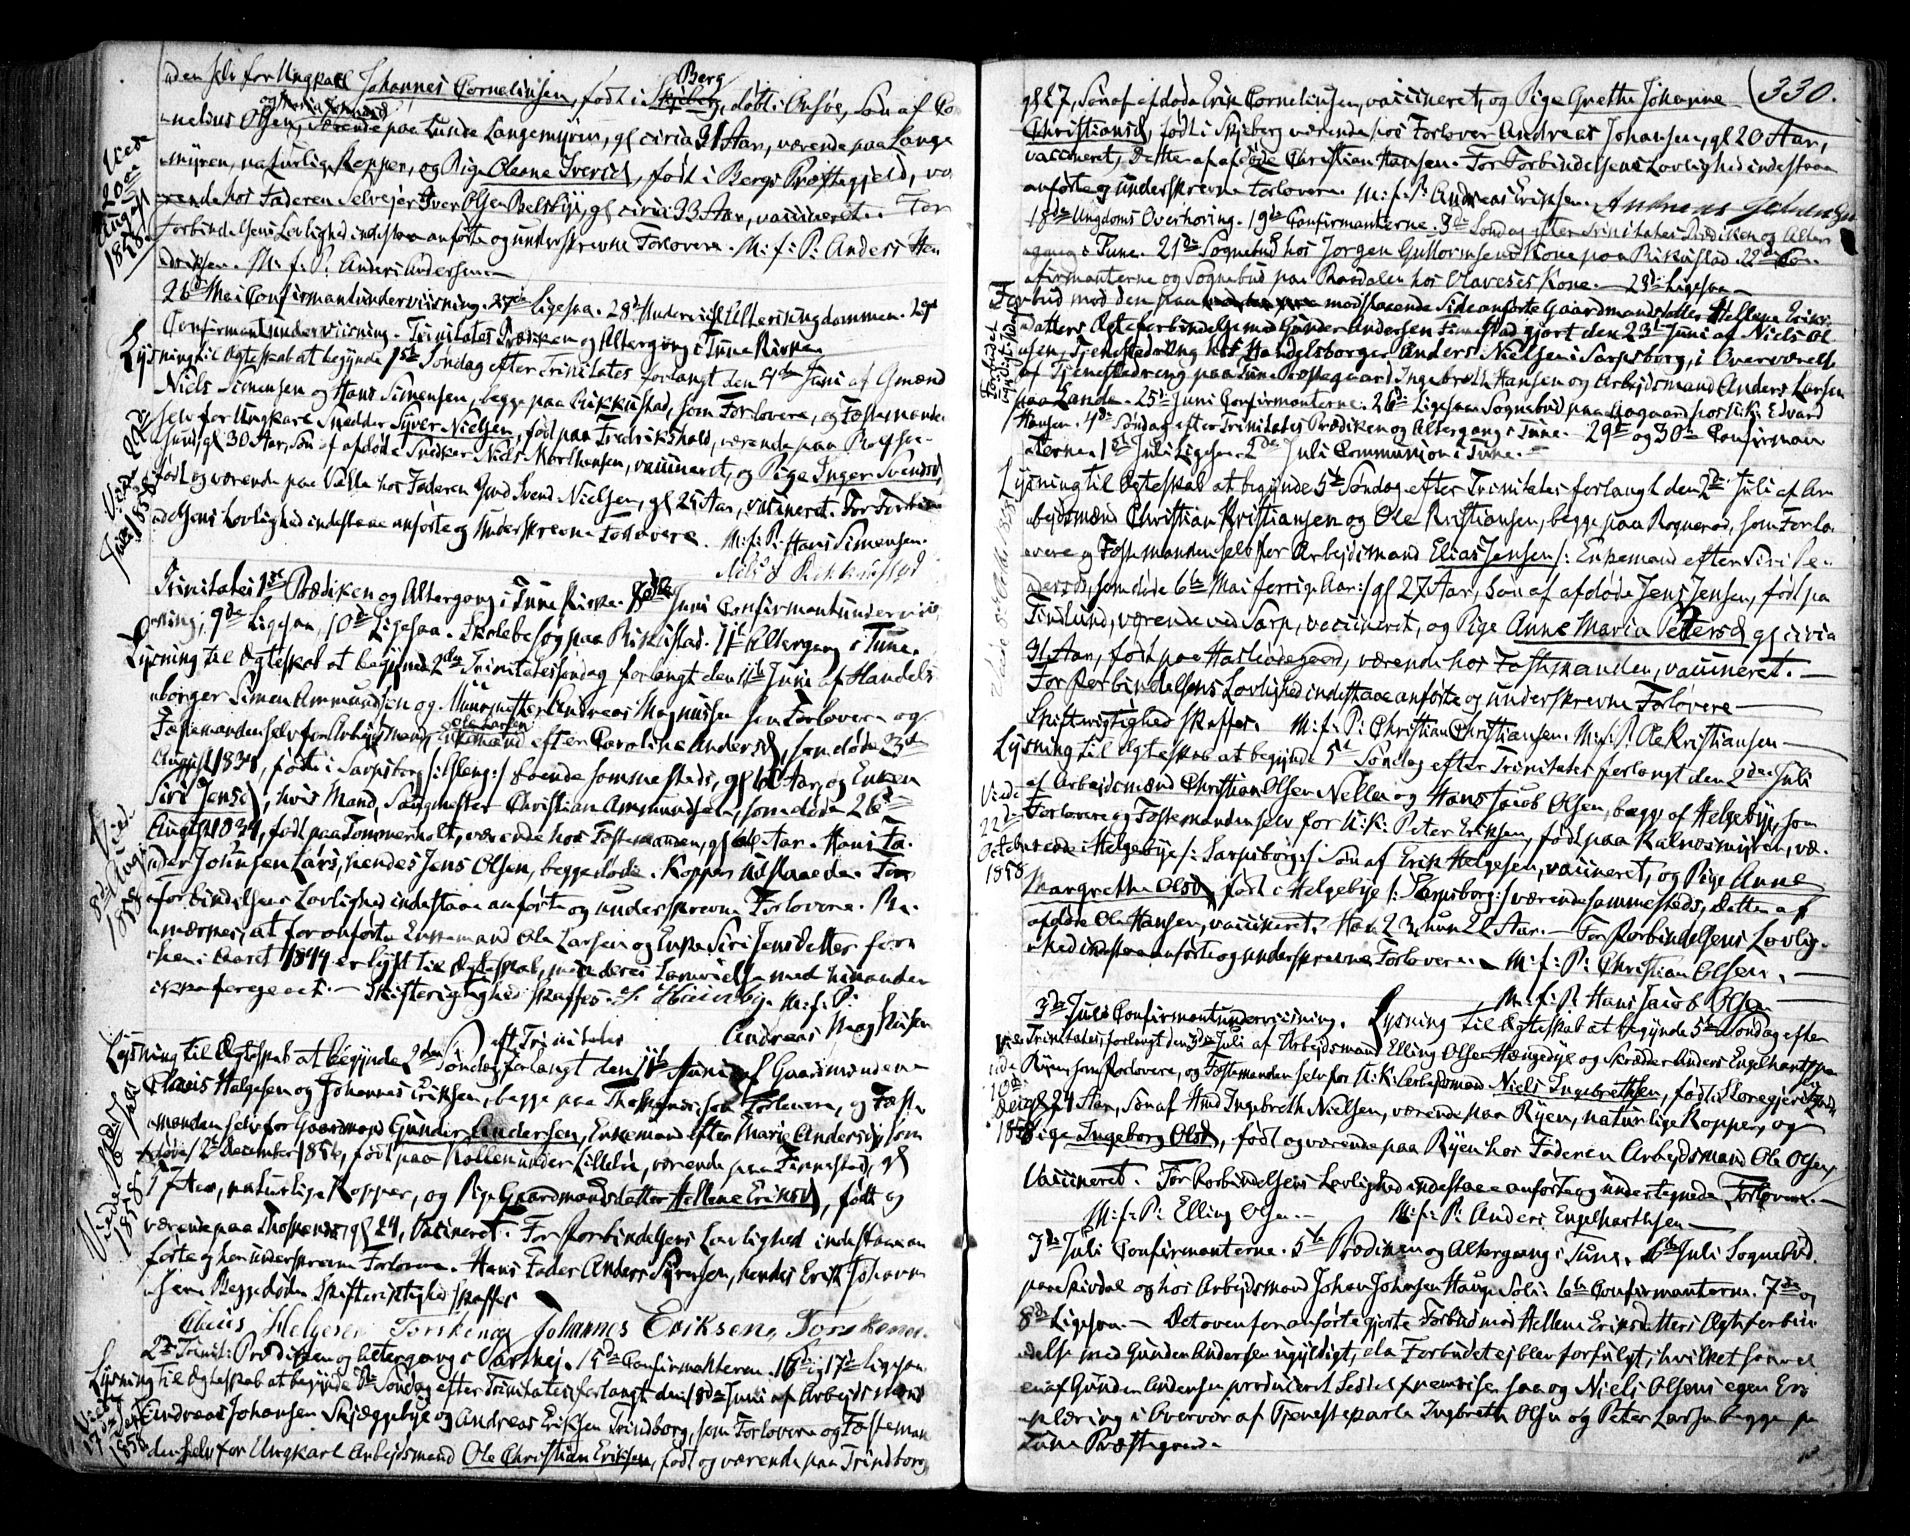 uden selv for Ungkarl Johannes Cornelinsen, født i Berg, døbt i Onsøe, Søn af Co
nelius Olsen, værende paa Tunde Langemyren, gl circa 31 Aar, værende paa Lange
myren, naturlige Kopper, og Pige Oleane Iversd, født i Bergs Præstegjeld, væ
rende hos Faderen Selvejer Iver Olsen Belsbye, gl circa 33 Aar, vaccineret. For
Forbindelsens Lovlighed indestaa anførte og underskrevne Forlovere. M: f: P: Anders Hen
driksen. M. f. P. Anders Andersen
Viede 20de August 1858.
26de Mai Confirmantunderviisning. 27de Ligesaa. 28de Underviist Altering dommen. 29de
Confirmantunderviisning. Trinitates Prædiken og Altergang i Tune Kirke.
Lysning til Ægteskab at begynde 1ste Søndag efter Trinitates forlangt den 4de Juni af Gmænd
Niels Simensen og Hans Simensen, begge paa Rikkustad, som Forlovere, og Fæstemanden
selv for Ungkarl Snedker Syver Nielsen, født paa Fredrikshald, værende paa
gl 30 Aar, Søn af afdøde Snedker Niels Morthensen, vaccineret, og Pige Inger Svendsd,
født og værende paa Valle hos Faderen Gmd Svend Nielsen, gl 25 Aar, vaccineret. For Forbin
delsens Lovlighed indestaae anførte og underskrevne Forlovere. M: f: P: Hans Simensen.
Niels S Rikkustad
Trinitates 1ste Prædiken og Altergang i Tune Kirke. 8de Juni Confirmantunderviis
ning; 9de Ligesaa, 10de Ligesaa. Skolebesøg paa Rikustad. 11te Altergang i Tune.
Lysning til Ægteskab at begynde 2den Trinitatessøndag forlangt den 11te Juni af Handels
borger Simen Ammundsen og Muurmester Andreas Magnussen som Forlovere og
Fæstemanden selv for Arbejdsmand Ole Larsen Enkemand efter Caroline Andersd, som døde 3de
August 1834, født i Sarpsborg /: Gleng :/ boende sammesteds, gl Aar, og Enken
Siri Jensd, hvis Mand, Saugmester Christian Ammundsen, som døde 26de
August 1834, født paa Tommerholt, værende hos Fæstemanden, gl Aar. Hans Fa
der Johnsen Lars, hendes Jens Olsen, begge døde. Kopper udstaaede. For
Forbindelsens Lovlighed indestaae anførte og underskrevne Forlovere. Be
mærkes, at for anførte Enkemand Ole Larsen og Enke Siri Jensdatter forn
i Aaret 1844 er lyst til Ægteskab, men deres Samvielse med hinanden
ikke foregaaet. Skifterigtighed skaffes. M: f: P:
Andreas Magnussen
Viede 8de Aug: 1858
Lysning til Ægteskab at begynde 2den Søndag eft Trinitates forlangt den 11te Juni af Gaardmændene
Claus Helgesen og Johannes Eriksen, begge paa Thoskenæs som Forlovere, og Fæste
manden selv for Gaardmand Gunder Andersen, Enkemand efter Marie Andersd, som
døde 12te December 1856, født paa Kollen under, værende paa Finnestad, gl
Aar, naturlige Kopper, og Pige Gaardmandsdatter Hellene Eriksd, født og
værende paa Thoskenæs, gl 24, vaccineret. For Forbindelsens Lovlighed indestaae an
førte og her underskrevne Forlovere. Hans Fader Anders Syversen, hendes Erik Johann
sen. Begge døde. Skifterigtighed skaffes
Claus Helgesen Torskenæs Johannes Eriksen, Torskenæs.
2de Trinit: Prædiken og Altergang i Varteig. 15de Confirmanterne. 16de og 17de Ligesaa
Lysning til Ægteskab at begynde Søndag efter Trinitates forlangt den 18de Juni af Arbejdsmænd
Andreas Johansen Skjæggebye og Andreas Eriksen Trindborg, som Forlovere og Fæsteman
den selv for Ungkarl Arbejdsmand Ole Christian Eriksen, født og værende paa Trindborg
330.
gl 27, Søn af afdøde Erik Cornelinsen, vaccineret, og Pige Grethe Johanne
Christiansd, født i Skjeberg værende hos Forlover Andreas Johansen, gl 20 Aar,
vaccineret, Datter af afdøde Christian Hansen. For Forbindelsens Lovlighed indestaae
anførte og underskrevne Forlovere. M: f: P: Andreas Eriksen. Andreas Johansen
18de Ungdoms Overhøring. 19de Confirmanterne. 3de Søndag efter Trinitates Prædiken og Alter
gang i Tune. 21de Sognebud hos Jørgen Guttormsens Kone paa Rikustad. 22de Con
firmanterne og Sognebud paa Raadalen hos Olaveses Kone. 23de Ligesaa
Forbud mod den paa modstaaende Side anførte Gaardmandsdatter Hellene Eriks
datters Ægteforbindelse med Gunder Andersen Finnestad gjort den 23de Juni af Niels Ol
sen, Tjenestedreng hos Handelsborger Anders Nielsen i Sarpsborg, i Overværelse
af Tjenestedreng paa Tune Præstegaard Ingebreth Hansen og Arbejdsmand Anders Larsen
paa Lande. 25de Juni Confirmanterne. 26de Ligesaa Sognebud paa Aagaard hos U: K: Edvard
Hansen. 4de Søndag efter Trinitates Prædiken og Altergang i Tune. 29de og 30te Confirman
terne. 1ste Juli Ligesaa. 2de Juli Communion i Tune.
Lysning til Ægteskab at begynde 5te Søndag efter Trinitates forlangt den 2de Juli af Ar
bejdsmænd Christian Kristiansen og Ole Kristiansen, begge paa Rognerød, som Forlo
vere og Fæstemanden selv for Arbejdsmand Elias Jensen /: Enkemand efter Siri Pe
dersd, som døde 6te Mai forrige Aar :/ gl 27 Aar, Søn af afdøde Jens Jensen, født paa
Tindlund, værende ved Sarp, vaccineret, og Pige Anne Maria Petersd gl circa
31 Aar, født paa Haslidegaard, værende hos Fæstemanden, vaccineret.
For Forbindelsens Lovlighed indestaae anførte og underskrevne Forlovere
Skifterigtighed skaffes. M: f: P: Christian Christiansen. M: f: P: Ole Kristiansen
Lysning til Ægteskab at begynde 5te Søndag efter Trinitates forlangt den 2den Juli
af Arbejdsmænd Christian Olsen Nellen og Hans Jacob Olsen, begge af Helgebye, som
Forlovere og Fæstemanden selv for U: K: Peter Eriksen, født paa Kalnæsmyren, væ
rende i Helgebye /: Sarpsborg :/ Søn af Erik Helgesen, vaccineret, og Pige Anne
Margrethe Olsd, født i Helgebye /: Sarpsborg :/ værende sammesteds, Datter af
afdøde Ole Hansen, vaccineret. Han 23, hun 22 Aar. For Forbindelsens Lovlig
hed indestaae anførte og underskrevne Forlovere. M: f: P: Christian Olsen.
M: f: P: Hans Jacob Olsen
Viede 22de October 1858
3de Juli Confirmantunderviisning. Lysning til Ægteskab at begynde 5te Søndag efter
Trinitates, forlangt den 3de Juli af Arbejdsmand Elling Olsen Hængedye og Skrædder Anders Engelhartsen
Ryen som Forlovere, og Fæstemanden selv for U: K: Arbejdsmand Niels Engebrethsen, født i
gl 24 Aar, Søn af Hmd Ingebreth Nielsen, værende paa Ryen, naturlige Kopper, og
Pige Ingeborg Olsd, født og værende paa Ryen hos Faderen Arbejdsmand Ole Olsen,
vaccineret. For Forbindelsens Lovlighed indestaae anførte og undertegnede Forlovere.
M: f: P: Elling Olsen. M: f: P: Anders Engelharthsen
3de Juli Confirmanterne. 5te Prædiken og Altergang i Tune. 6te Juli Sognebud
paa Skivdal og hos Arbejdsmand Johan Johnsen Hauge Soli. 6te Confirmanterne. 7de og
8de Ligesaa. Det ovenfor anførte gjorte Forbud mod Hellene Eriksdatters Ægteforbin
delse med Gunder Andersen ugyldigt, da Forbudet ej blev forfulgt, hvilket saavel
en af Gunder Andersen produceret Seddel fremviser som og Niels Olsens egen Er
klæring i Overvær af Tjenestekarle Ingbreth Olsen og Peter Larsen begge paa
Tune Præstegaard.